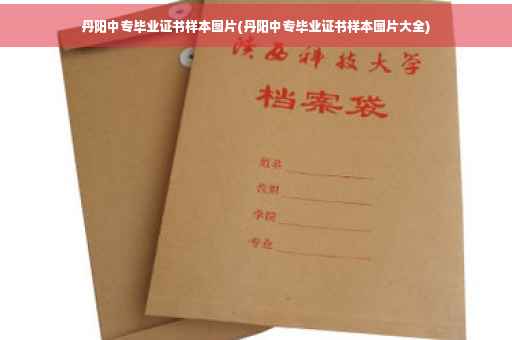 丹阳中专毕业证书样本图片(丹阳中专毕业证书样本图片大全)
陕西科技大学
档案袋
姓名
学院
专业